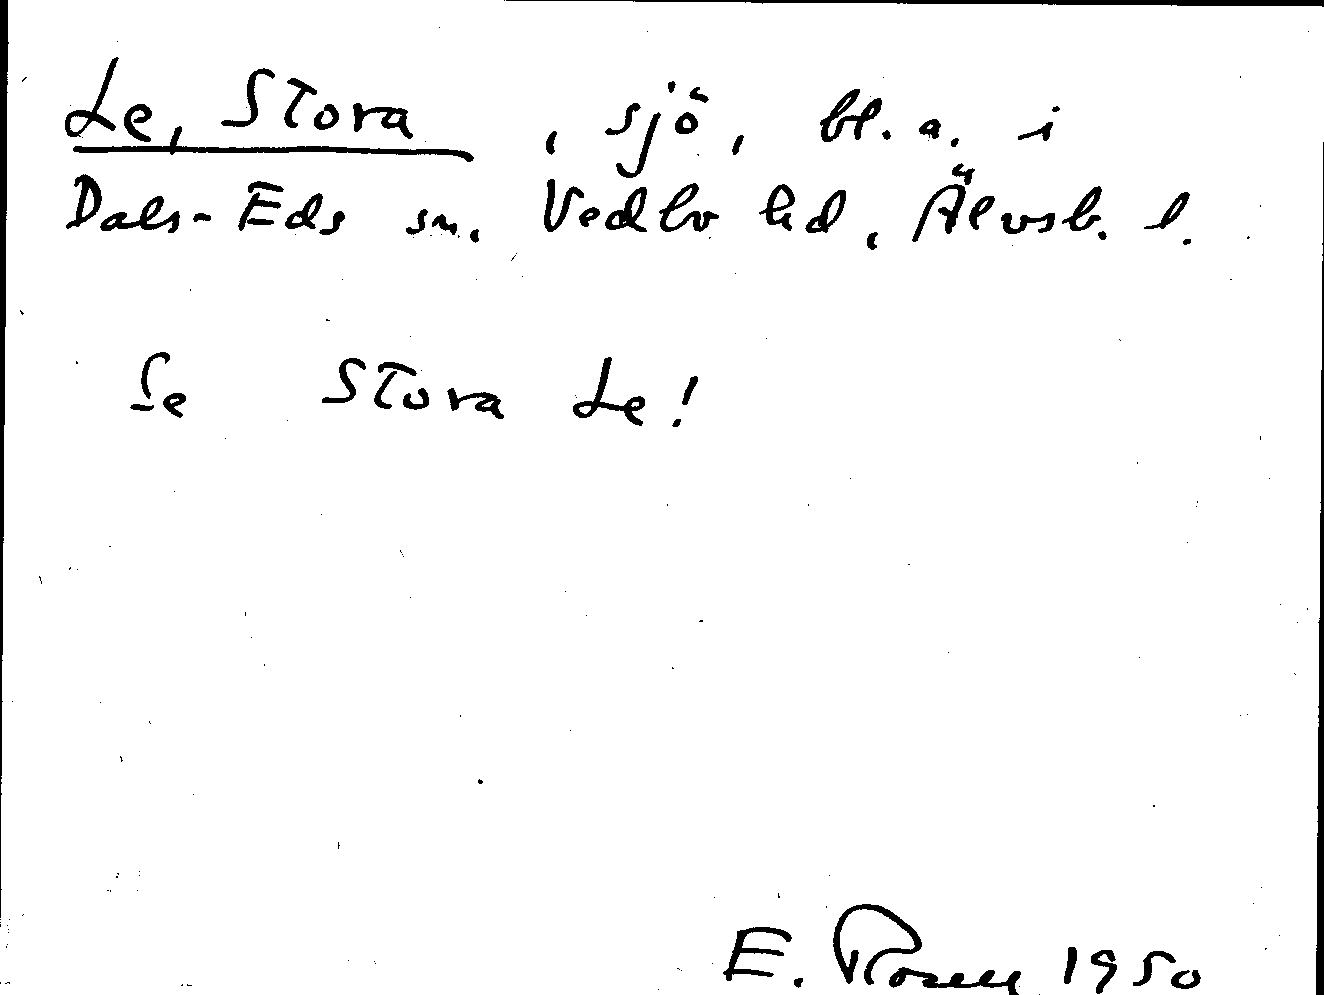 Le, Stora, sjö, bl. a. i
Dals-Eds sn, Vedbo hd, Älvsb. l.
Se Stora Le!
E. Rosell 1950